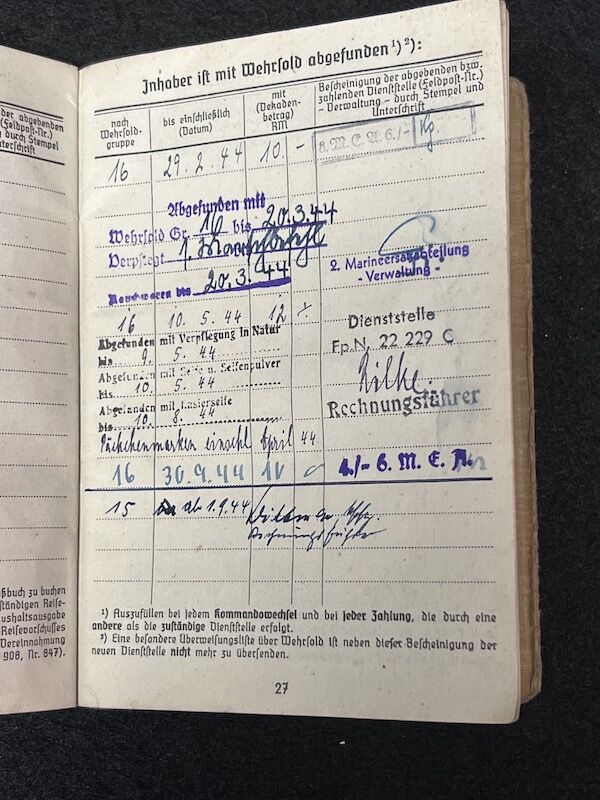 der abgebenden
(Feldpost-Nr.)
durch Stempel
nterschrift
Inhaber ist mit Wehrsold abgefunden ¹) ²):
nach Wehrsold-gruppe
bis einschließlich (Datum)
mit (Dekaden-betrag) RM
Bescheinigung der abgebenden bzw.
zahlenden Dienststelle (Feldpost-Nr.)
- Verwaltung - durch Stempel und
Unterschrift
16 29. 2. 44 10. - 8. M. E. A. 6./-
Abgefunden mit
Wehrsold Gr. 16 bis 20.3.44
Verpflegt
bis 20.3.44
2. Marineersatzabteilung
- Verwaltung -
16 10. 5. 44 12
Abgefunden mit Verpflegung in Natur
bis 9. 5. 44
Abgefunden mit Seife u. Seifenpulver
bis 10. 5. 44
Abgefunden mit Rasierseife
bis 10. 8. 44
Dienststelle
Fp.N. 22 229 C
Rilke.
Rechnungsführer
Päckchenmarken einschl April 44
16 30.9.44 10 4./- 6. M. E. A.
15 ab 1.9.44
Rechnungsführer
ßbuch zu buchen
ständigen Reise-
ushaltsausgabe
Reisevorschusses
Vereinnahmung
908, Nr. 847).
¹) Auszufüllen bei jedem Kommandowechsel und bei jeder Zahlung, die durch eine
andere als die zuständige Dienststelle erfolgt.
²) Eine besondere Überweisungsliste über Wehrsold ist neben dieser Bescheinigung der
neuen Dienststelle nicht mehr zu übersenden.
27